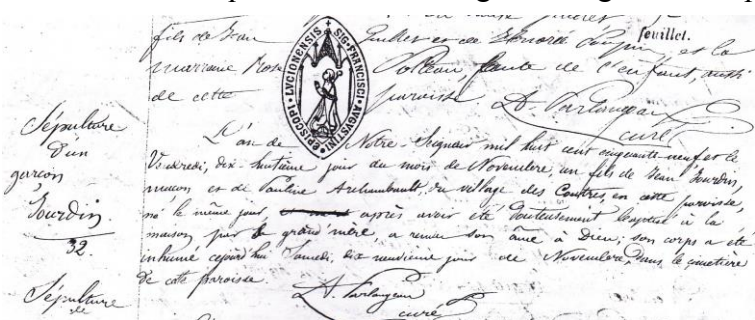 feuillet.
fils de Jean Guillet et de Honoré Poupin, et la
marraine Rose Polteau, tante de l'enfant, aussi
de cette paroisse.
curé
EPISCOPI · LUCIONENSIS · SIG · FRANCISCI AUGUSTINI
Sépulture
d'un
garçon
Jourdin
32.
L'an de Notre-Seigneur mil huit cent cinquante-neuf et le
Vendredi, dix-huitième jour du mois de Novembre, un fils de Jean Jourdin,
maçon et de Pauline Archambault, du village des Coutres, en cette paroisse,
né le même jour, après avoir été douteusement baptisé à la
maison par la grand'mère, a remis son âme à Dieu; son corps a été
inhumé cejourd'hui Samedi, dix neuvième jour de Novembre, dans le cimetière
de cette paroisse.
curé
Sépulture
de